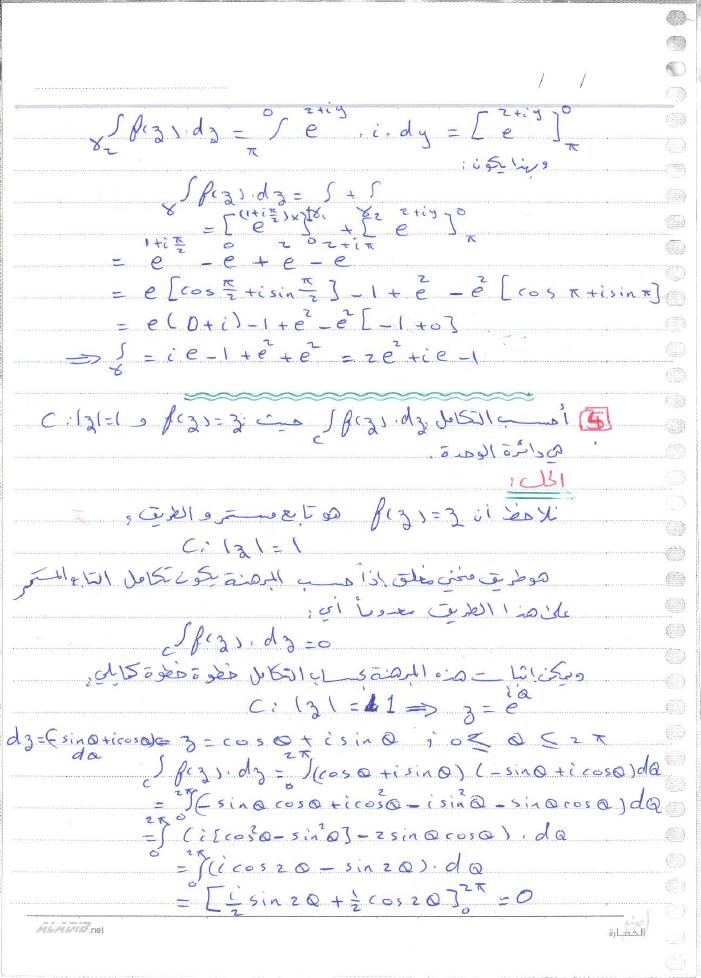 / /
γ₂∫ f(z).dz = π∫⁰ e^{2+iy} . i . dy = [ e^{2+iy} ]⁰_π
وبهذا يكون :
γ∫ f(z).dz = ∫γ₁ + ∫γ₂
= [ e^{(1+iπ/2)x} ]¹₀ + [ e^{2+iy} ]⁰_π
= e^{1+iπ/2} - e⁰ + e² - e^{2+iπ}
= e [cos π/2 + i sin π/2] - 1 + e² - e² [cos π + i sin π]
= e(0+i) - 1 + e² - e² [-1+0]
⇒ ∫γ = ie - 1 + e² + e² = 2e² + ie - 1
5 أحسب التكامل c∫ f(z).dz حيث f(z)=z و C:|z|=1
هي دائرة الوحدة .
الحل :
نلاحظ أن f(z)=z هو تابع مستمر والطريق ,
C: |z| = 1
هو طريق منحني مغلق إذاً حسب المبرهنة يكون تكامل التابع المستمر
على هذا الطريق معدوماً أي :
c∫ f(z).dz = 0
ويمكن إثبات هذه المبرهنة بحساب التكامل خطوة خطوة كمايلي ,
C: |z| = 1 ⇒ z = e^{iθ}
dz=(-sinθ+icosθ)dθ ⇐ z = cosθ + i sinθ ; 0 ≤ θ ≤ 2π
c∫ f(z).dz = ₀∫^{2π} (cosθ + i sinθ) (-sinθ + i cosθ) dθ
= ₀∫^{2π} (-sinθ cosθ + i cos²θ - i sin²θ - sinθ cosθ) dθ
= ₀∫^{2π} (i[cos²θ - sin²θ] - 2 sinθ cosθ) . dθ
= ₀∫^{2π} (i cos2θ - sin2θ) . dθ
= [ i/2 sin2θ + 1/2 cos2θ ]₀^{2π} = 0
ALMUBID.net
الحضارة